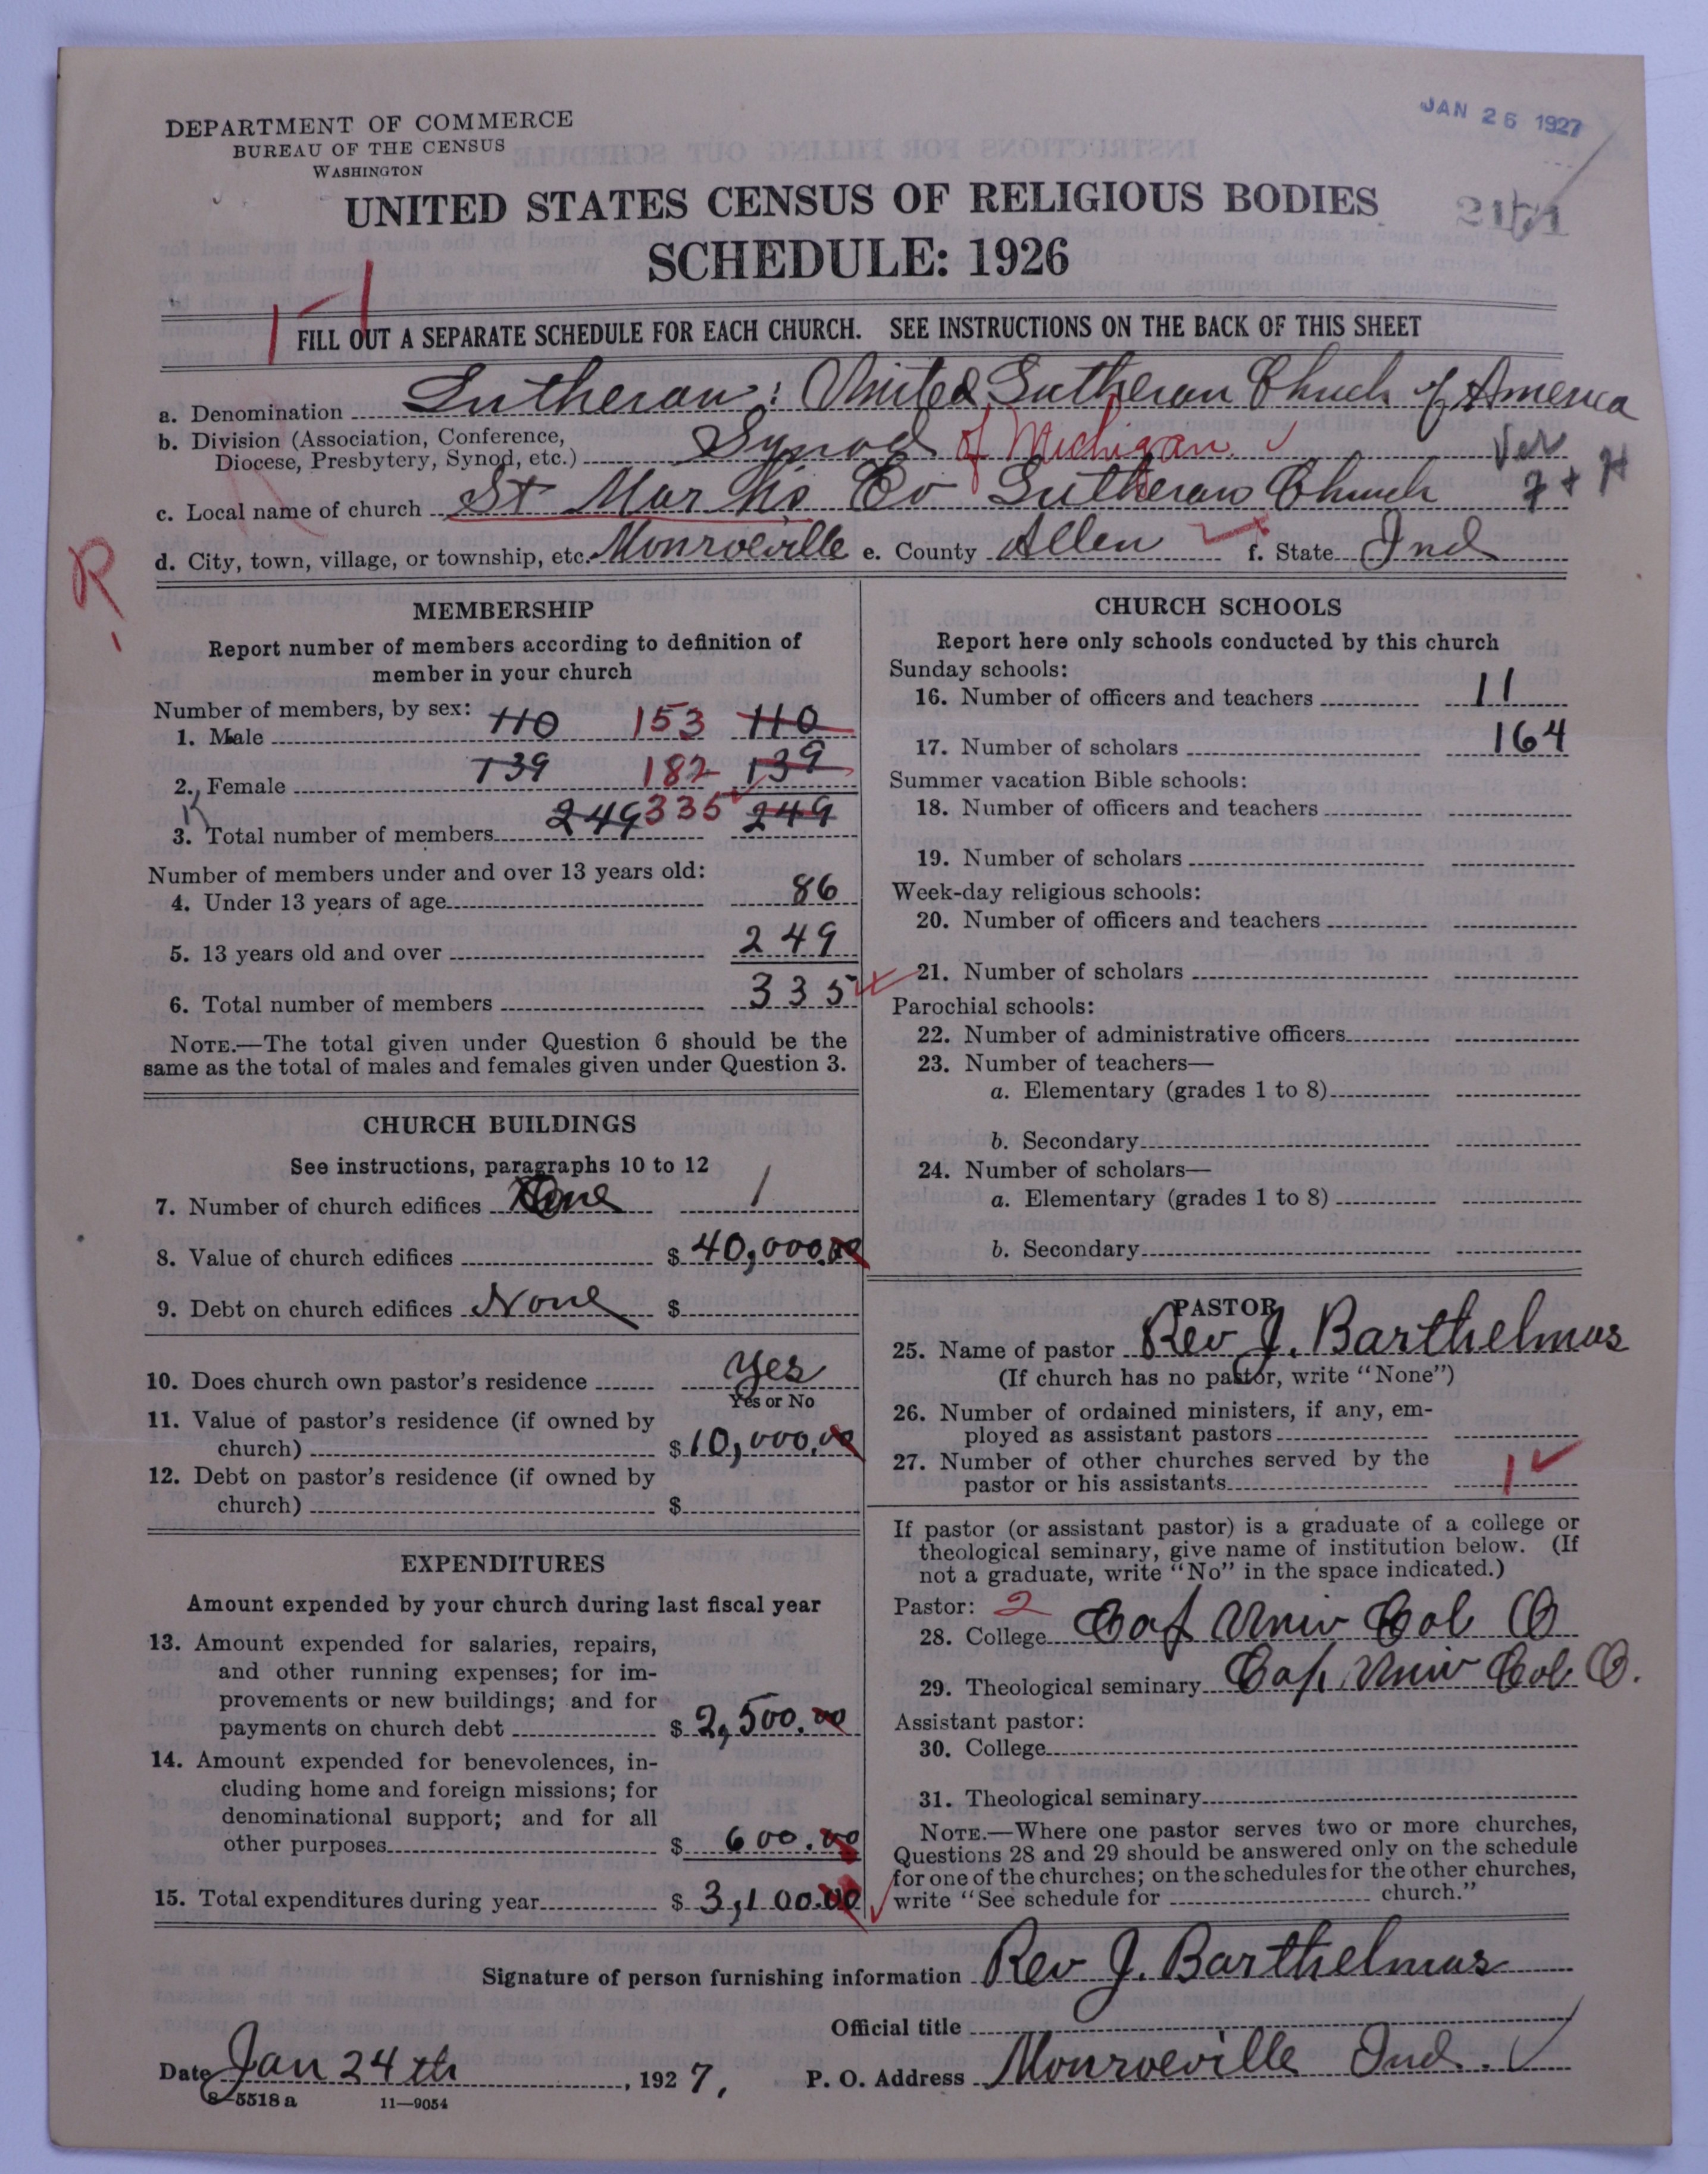 JAN 26 1927
DEPARTMENT OF COMMERCE
BUREAU OF THE CENSUS
WASHINGTON
UNITED STATES CENSUS OF RELIGIOUS BODIES
SCHEDULE: 1926
FILL OUT A SEPARATE SCHEDULE FOR EACH CHURCH. SEE INSTRUCTIONS ON THE BACK OF THIS SHEET
a. Denomination Lutheran: United Lutheran Church of America
b. Division (Association, Conference,
Diocese, Presbytery, Synod, etc.) Synod of Michigan. Ver
c. Local name of church St Marks Ev Lutheran Church 7 + H
d. City, town, village, or township, etc. Monroeville e. County Allen f. State Ind
R
MEMBERSHIP
Report number of members according to definition of
member in your church
Number of members, by sex:
1. Male 110 153 110
2. Female 139 182 139
3. Total number of members 249 335 249
Number of members under and over 13 years old:
4. Under 13 years of age 86
5. 13 years old and over 249
6. Total number of members 335
NOTE.—The total given under Question 6 should be the
same as the total of males and females given under Question 3.
CHURCH BUILDINGS
See instructions, paragraphs 10 to 12
7. Number of church edifices One 1
8. Value of church edifices $ 40,000.00
9. Debt on church edifices None $
10. Does church own pastor's residence yes
Yes or No
11. Value of pastor's residence (if owned by
church) $ 10,000.00
12. Debt on pastor's residence (if owned by
church) $
EXPENDITURES
Amount expended by your church during last fiscal year
13. Amount expended for salaries, repairs,
and other running expenses; for im-
provements or new buildings; and for
payments on church debt $ 2,500.00
14. Amount expended for benevolences, in-
cluding home and foreign missions; for
denominational support; and for all
other purposes $ 600.00
15. Total expenditures during year $ 3,100.00
CHURCH SCHOOLS
Report here only schools conducted by this church
Sunday schools:
16. Number of officers and teachers 11
17. Number of scholars 164
Summer vacation Bible schools:
18. Number of officers and teachers
19. Number of scholars
Week-day religious schools:
20. Number of officers and teachers
21. Number of scholars
Parochial schools:
22. Number of administrative officers
23. Number of teachers—
a. Elementary (grades 1 to 8)
b. Secondary
24. Number of scholars—
a. Elementary (grades 1 to 8)
b. Secondary
PASTOR
25. Name of pastor Rev J. Barthelmas
(If church has no pastor, write "None")
26. Number of ordained ministers, if any, em-
ployed as assistant pastors
27. Number of other churches served by the
pastor or his assistants 1
If pastor (or assistant pastor) is a graduate of a college or
theological seminary, give name of institution below. (If
not a graduate, write "No" in the space indicated.)
Pastor: 2
28. College Cap Univ Col O
29. Theological seminary Cap. Univ Col O.
Assistant pastor:
30. College
31. Theological seminary
NOTE.—Where one pastor serves two or more churches,
Questions 28 and 29 should be answered only on the schedule
for one of the churches; on the schedules for the other churches,
write "See schedule for church."
Signature of person furnishing information Rev J. Barthelmas
Official title
Date Jan 24th, 1927, P. O. Address Monroeville Ind.
8—5518 a 11—9054